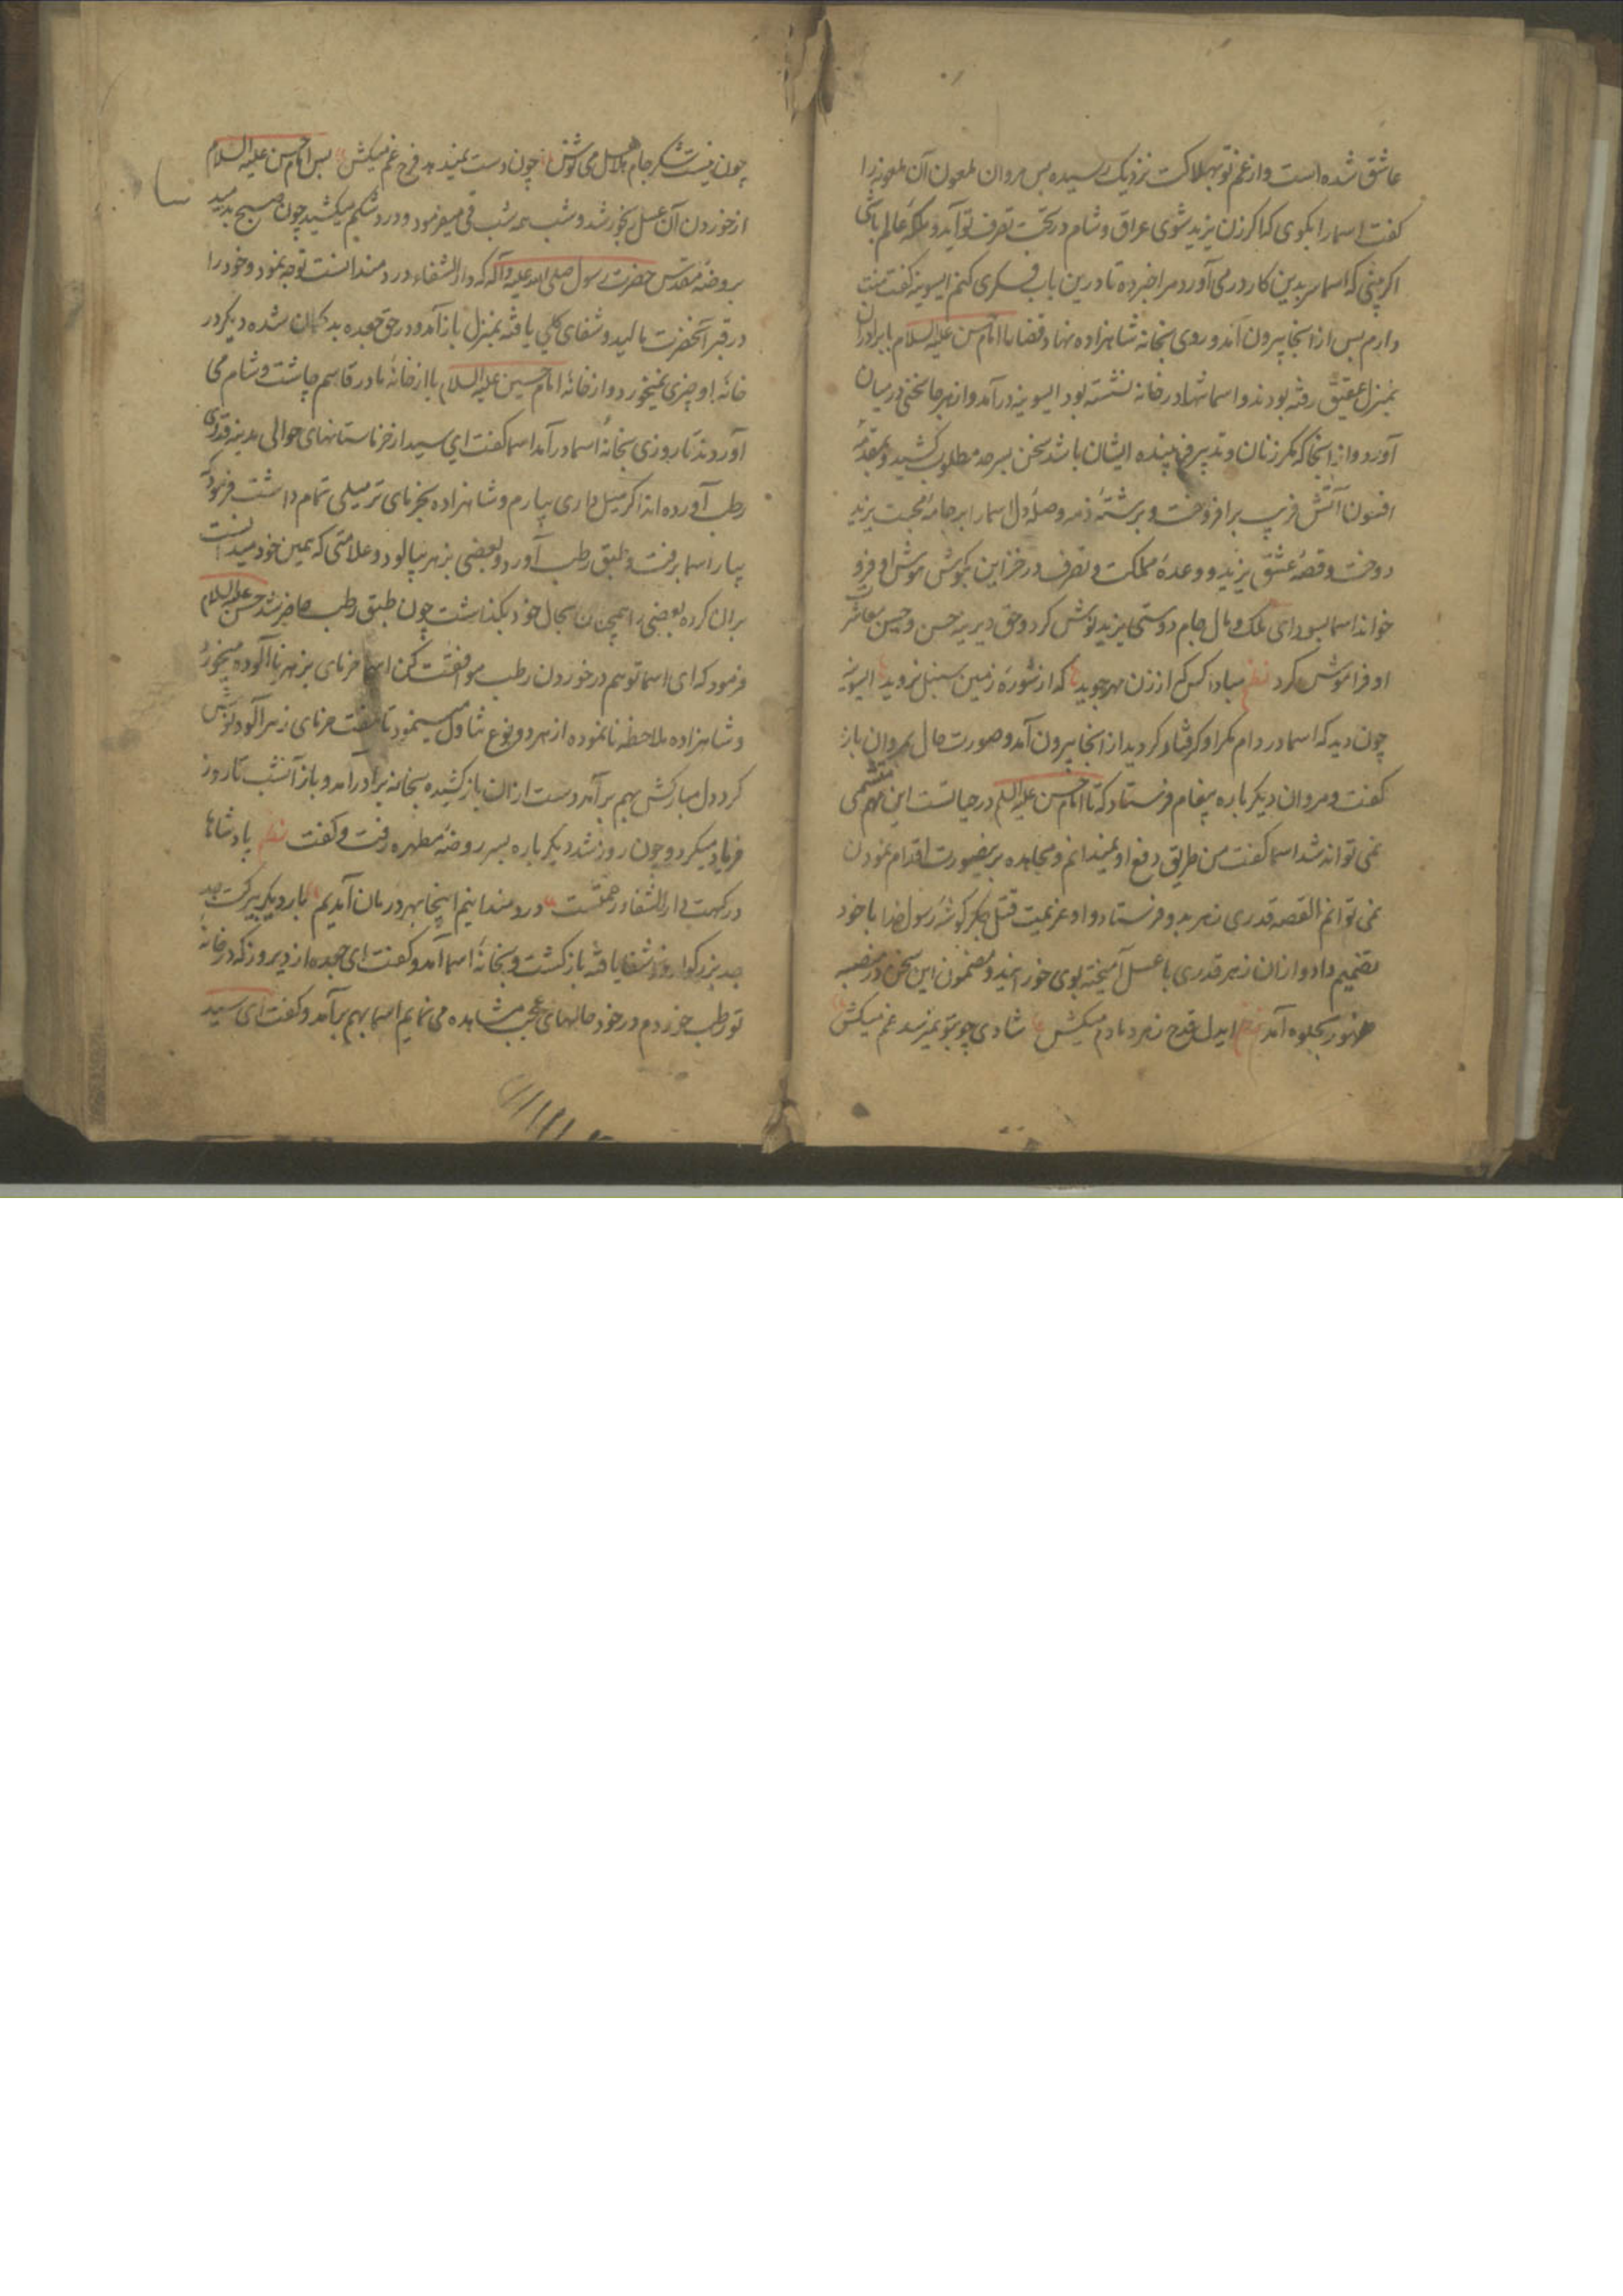 عاشق شده است و از غم تو بهلاکت نزدیک رسیده پس مروان ملعون آن ملعونه را
کفت اسما را بکوی که اکر زن یزید شوی عراق و شام در تحت تصرف تو آید و ملکهٔ عالم باشی
اکر بینی که اسما سر بدین کار در می آورد مرا خبر ده تا درین باب فکری کنم ایسونیه کفت منت
دارم پس از انجا بیرون آمد و روی بخانه شاهزاده نهاد قضا را امام حسن علیه السلام با برادران
بمنزل عقیق رفته بودند و اسما تنها در خانه نشسته بود ایسونیه درآمد و از هر جا سخنی در میان
آورد و از انجا که مکر زنان و تدبیر فریبنده ایشان باشد سخن بسرحد مطلوب کشید و بمقدمهٔ
افسون آتش فریب برافروخت و برشتهٔ دمدمه وصلهٔ دل اسما را بر جامهٔ محبت یزید
دوخت و قصهٔ عشق یزید و وعدهٔ مملکت و تصرف در خزاین بکوش هوش او فرو
خواند اسما بسودای ملک و مال جام دوستی یزید نوش کرد و حق دیرینه حسن و حسن معاشرت
او فراموش کرد نظم مبادا کس که از زن مهر جوید که از شوره زمین سنبل نروید ایسونیه
چون دید که اسما در دام مکر او کرفتار کردید از انجا بیرون آمد و صورت حال بمروان باز
کفت و مروان دیکر باره پیغام فرستاد که تا امام حسن علیه السلم در حیاتست این مهم متمشی
نمی تواند شد اسما کفت من طریق دفع او نمیدانم و مجاهده برینصورت اقدام نمودن
نمی توانم القصه قدری زهر بدو فرستاد و او عزیمت قتل جکر کوشهٔ رسول خدا با خود
تصمیم داد و ازان زهر قدری با عسل آمیخته بوی خورانید و مضمون این سخن در منصهٔ
ظهور بجلوه آمد نظم ایدل قدح زهر دمادم میکش شادی چو بتو نمیرسد غم میکش
چون نیست شکر جام هلاهل می نوش چون دست نمیدهد فرح غم میکش پس امام حسن علیه السلام
از خوردن آن عسل رنجور شد و شب همه شب قی میفرمود و درد شکم میکشید چون صبح بدمید
بروضهٔ مقدس حضرت رسول صلی الله علیه وآله که دارالشفاء دردمندانست توجه نمود و خود را
در قبر آنحضرت بمالید و شفای کلی یافته بمنزل باز آمد و در حق جعده بدکمان شده دیکر در
خانهٔ او چیزی نمیخورد و از خانهٔ امام حسین علیه السلام یا از خانهٔ مادر قاسم چاشت و شام می
آوردند تا روزی بخانهٔ اسما درآمد اسما کفت ای سید از خرماستانهای حوالی مدینه قدری
رطب آورده اند اکر میل داری بیارم و شاهزاده بخرمای تر میلی تمام داشت فرمود که
بیار اسما برفت و طبق رطب آورد و بعضی بزهر بیالود و علامتی که همین خود میدانست
بران کرده بعضی را همچنان بحال خود بکذاشت چون طبق رطب حاضر شد حسن علیه السلام
فرمود که ای اسما تو هم در خوردن رطب موافقت کن اسما خرمای بزهر ناآلوده میخورد
و شاهزاده ملاحظه نانموده از هر دو نوع تناول میفرمود تا هفت خرمای زهرآلود نوش
کرد دل مبارکش بهم برآمد دست ازان باز کشیده بخانه برادر آمد و باز آنشب تا روز
فریاد میکرد و چون روز شد دیکر باره بسر روضهٔ مطهره رفت و کفت نظم پادشاها
درکهت دارالشفاء رحمتست دردمندانیم اینجا بهر درمان آمدیم بار دیکر ببرکت جد
بزرکوار خود شفا یافته باز کشت و بخانهٔ اسما آمد و کفت ای جعده از دیروز که در خانهٔ
تو رطب خوردم در خود حالهای عجب مشاهده می نمایم اسما بهم برآمد و کفت ای سید